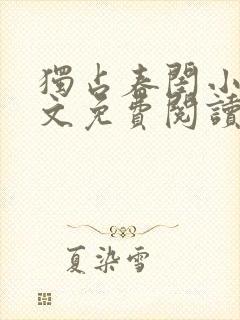 獨占春閨小
文免費閱讀
夏染雪